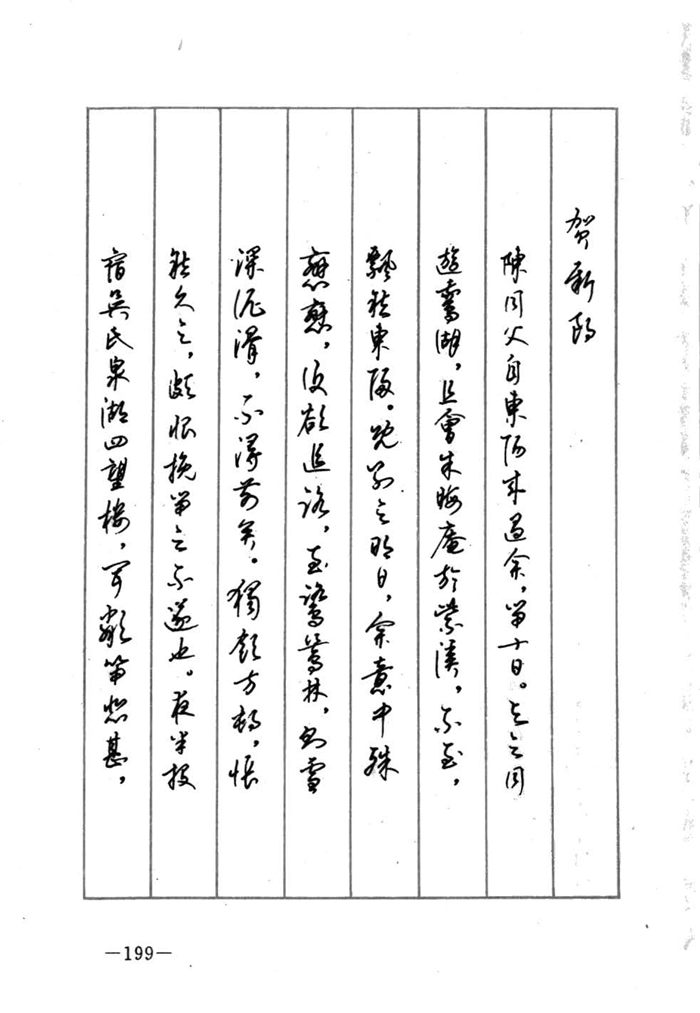 贺新郎
陳同父自東陽來過余，留十日。与之同
遊鵞湖，且會朱晦庵於紫溪，不至，
飄然東歸。既别之明日，余意中殊
戀戀，復欲追路，至鷺鶿林，則雪
深泥滑，不得前矣。獨飲方村，悵
然久之，頗恨挽留之不遂也。夜半投
宿吴氏泉湖四望樓，聞鄰笛悲甚，
—199—